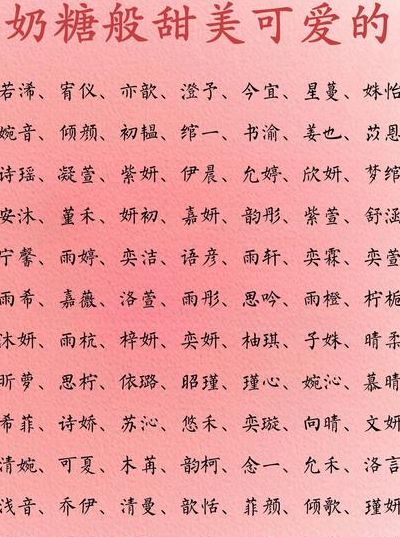 奶糖般甜美可爱的
若浠、宥仪、亦歆、澄予、今宜、星蔓、姝怡
婉音、倾颜、初韫、绾一、书渝、姜也、苡恩
诗瑶、凝萱、紫妍、伊晨、允婷、欣妍、梦绾
安沐、堇禾、妍初、嘉妍、韵彤、紫萱、舒涵
宁馨、雨婷、奕洁、语彦、雨轩、奕霖、奕萱
雨希、嘉薇、洛萱、雨彤、思吟、雨橙、柠栀
沐妍、雨杭、梓妍、奕妍、柚琪、子姝、晴柔
昕萝、思柠、依璐、昭瑾、瑾心、婉沁、慕晴
希菲、诗娇、苏沁、悠禾、奕璇、向晴、文妍
清婉、可夏、木苒、韵柯、念一、允禾、洛言
浅音、乔伊、清曼、歆恬、菲颜、倾歌、瑾妍